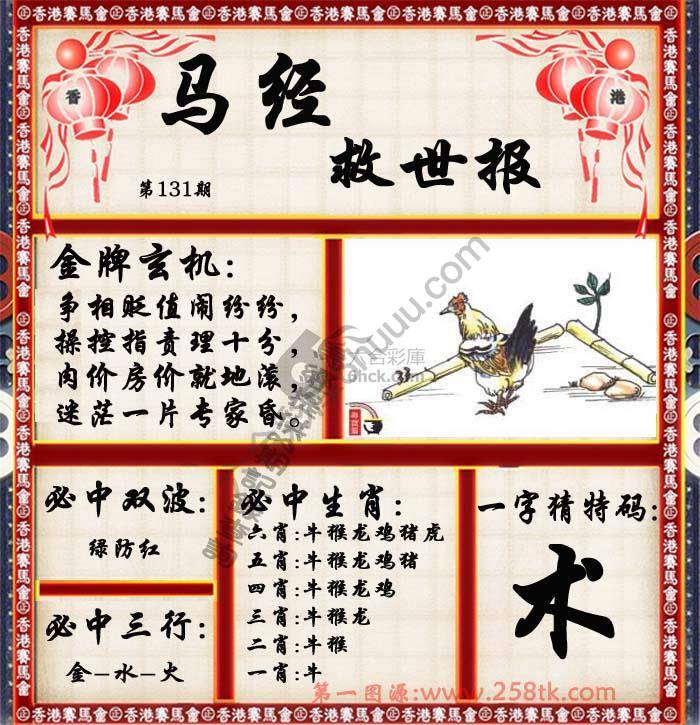 香港
马经
救世报
第131期
金牌玄机:
争相贬值闹纷纷,
操控指责理十分,
肉价房价就地滚,
迷茫一片专家昏。
必中双波:
绿防红
必中三行:
金-水-火
必中生肖:
六肖:牛猴龙鸡猪虎
五肖:牛猴龙鸡猪
四肖:牛猴龙鸡
三肖:牛猴龙
二肖:牛猴
一肖:牛
一字猜特码:
术
第一图源:www.258tk.com
香港賽馬會